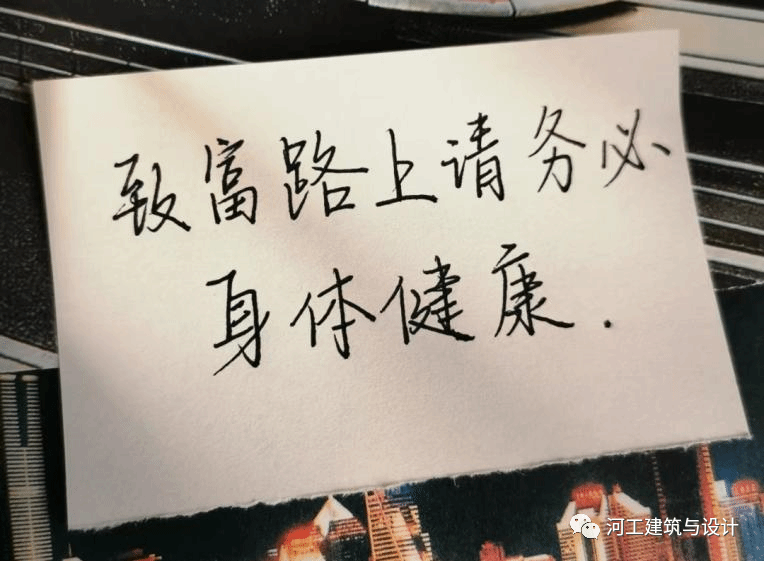 致富路上请务必
身体健康.
河工建筑与设计